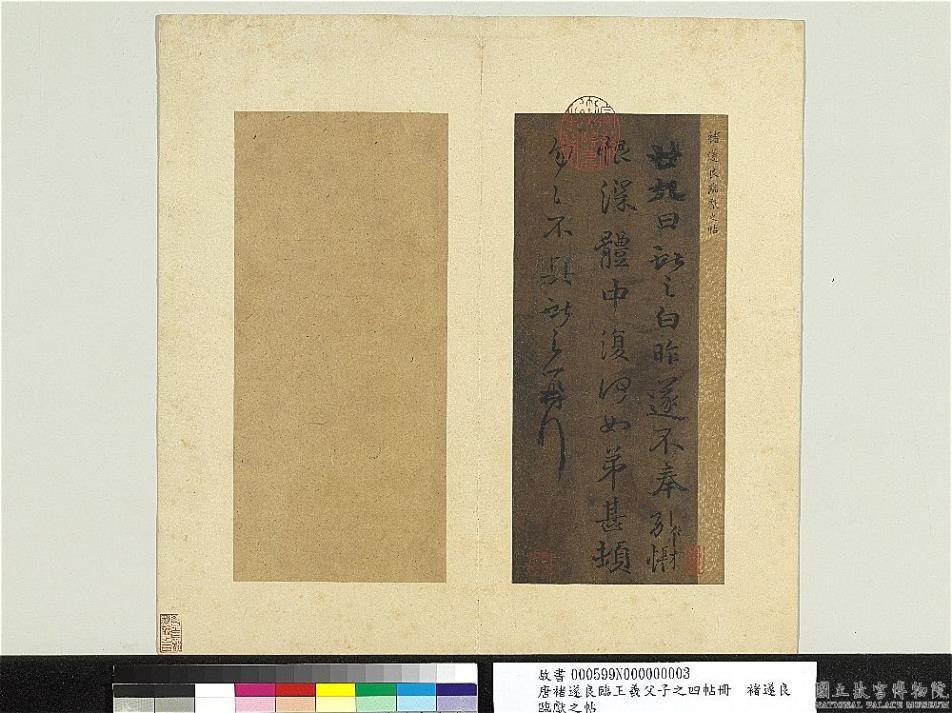 褚遂良臨獻之帖
廿九日獻之白昨遂不奉別悵
恨深體中復何如弟甚頓
勿々不具獻之再拜
故書 000599N000000003
唐褚遂良臨王羲父子之四帖冊 褚遂良
臨獻之帖
國立故宮博物院
NATIONAL PALACE MUSEUM